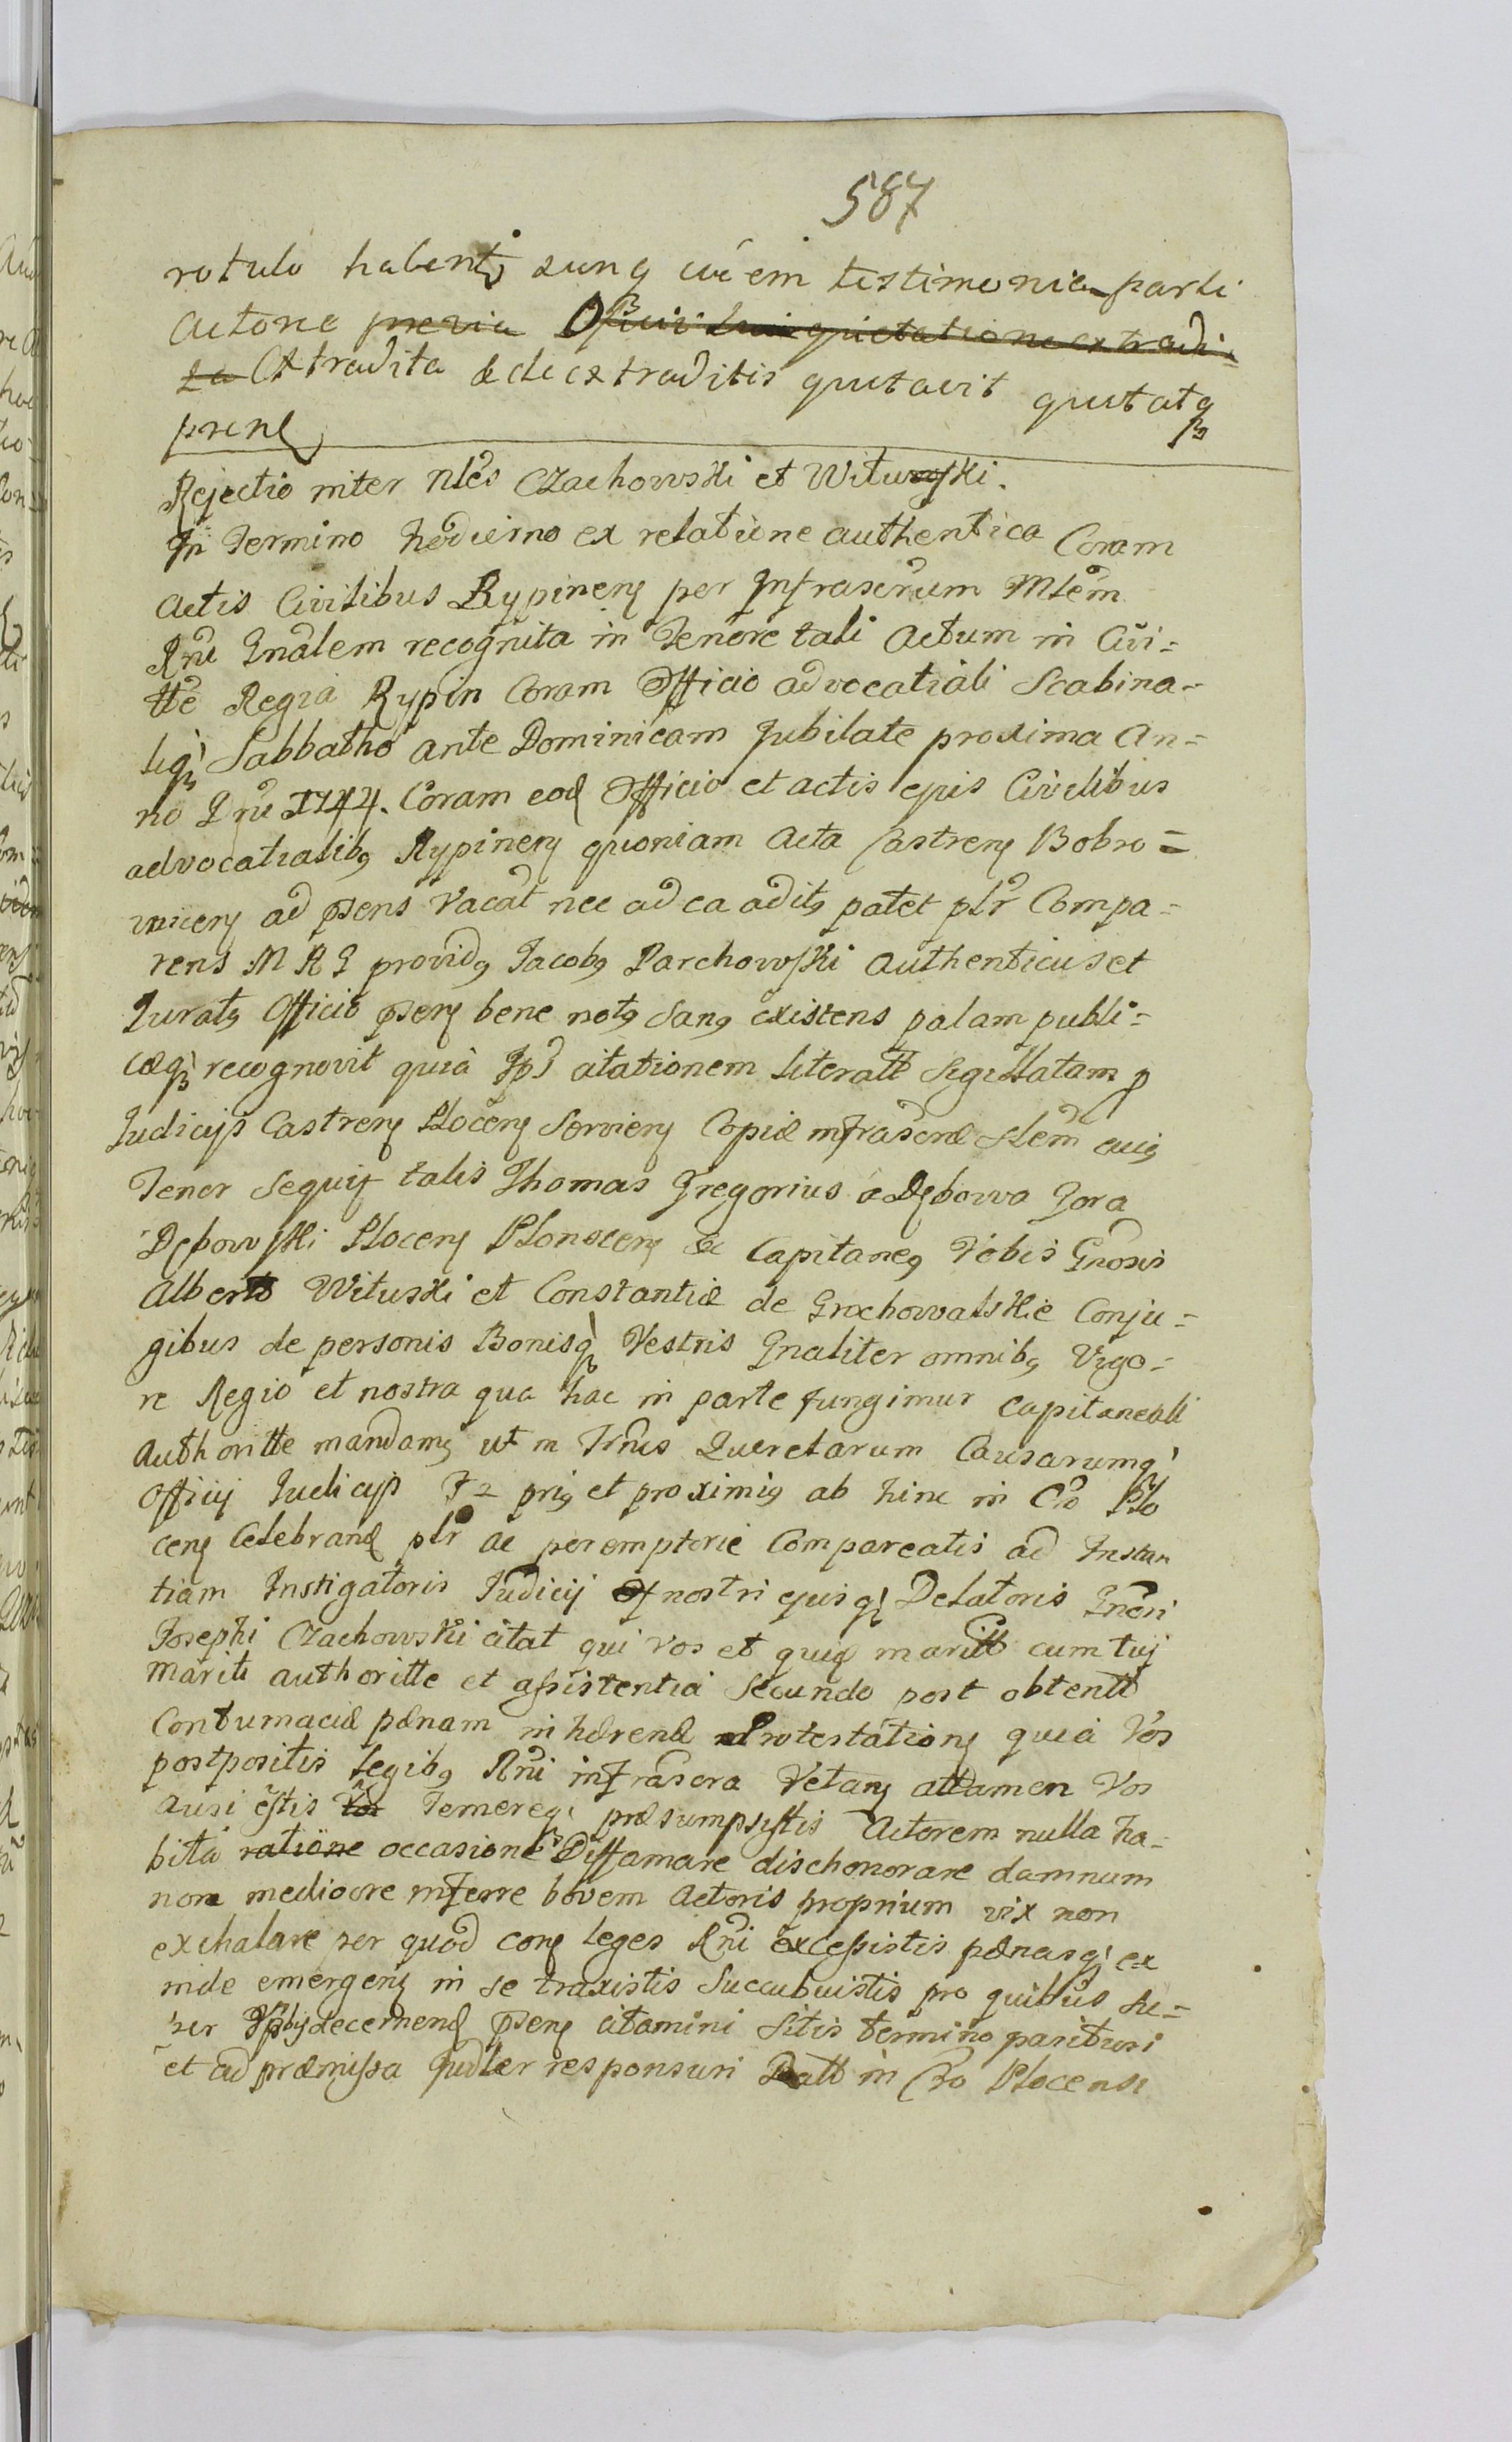 587
rotulo habent, sunq testimonia parti
Actoreæ previa Officii sui quietatione extradi-
ta Extradita & de extraditis quietavit quietatq
pnenq
Rejectio inter Nlẽs Czachowski et Wituski.
In Termino hodierno ex relatione authentica Coram
Actis Civilibus Rypineñ per Infrascrum Mlẽm
Rñi Gnãlem recognita in Tenore tali Actum in Civi=
tte Regia Rypin Coram Officio advocatiali Scabina=
liq, Sabbatho ante Dominicam Jubilate proxima An=
no Dni 1744. Coram eod Officio et actis ejus Civilibus
advocatialibq Rypineñ quoniam Acta Castreñ Bobro=
wniceñ ad pñsens vacãt nec ad ea aditq patet plr Compa=
rens M R G providq Jacobq Parchowski Authenticus et
Juratq Officio pñseñ bene notq sanq existens palam publi=
cæq recognovit quia citationem literatt Sigillatam p
Judicijs Castreñ Ploceñ Servieñ Copiæ infrascræ Slem cuiq
Tenor sequit talis Thomas Gregorius a Dębowa Gora
Dębowski Ploceñ Plonsceñ & Capitaneq Vobis Gnosis
Alberto Wituski et Constantiæ de Grochowalskie Conju=
gibus de personis Bonisq Vestris Gnaliter omnibq Vigo=
re Regio et nostra qua hac in parte fungimur Capitaneali
Authoritte mandamq ut in Trñis Querelarum Causarumq
Officij Judicijs T2 priq et proximiq ab hinc in Cro Plo
ceñ Celebrand plr ac peremptorie Compareatis ad Instan
tiam Instigatoris Judicij nostri ejusq Delatoris Gnosi
Josephi Czachowski citat qui vos et quid maritt cum tuj
mariti authoritte et assistentia Secundo post obtentt
Contumaciæ pænam inhærend Protestationq quia Vos
postpositis legibq Rñi infrascra Vetanq attamen Vos
ausi estis Vos Temereq præsumpsistis Actorem nulla ha=
bita ratione occasione Diffamare dischonorare damnum
non mediocre inferre bovem Actoris proprium vix non
exhalare per quod conq leges Rñi excessistis pænasq ex
inde emergenq in se traxistis Succubuistis pro quibus su=
per decernend pñsenq citamini Sitis termino parituri
et ad præmissa Judler responsuri Datt in Cro Plocensi